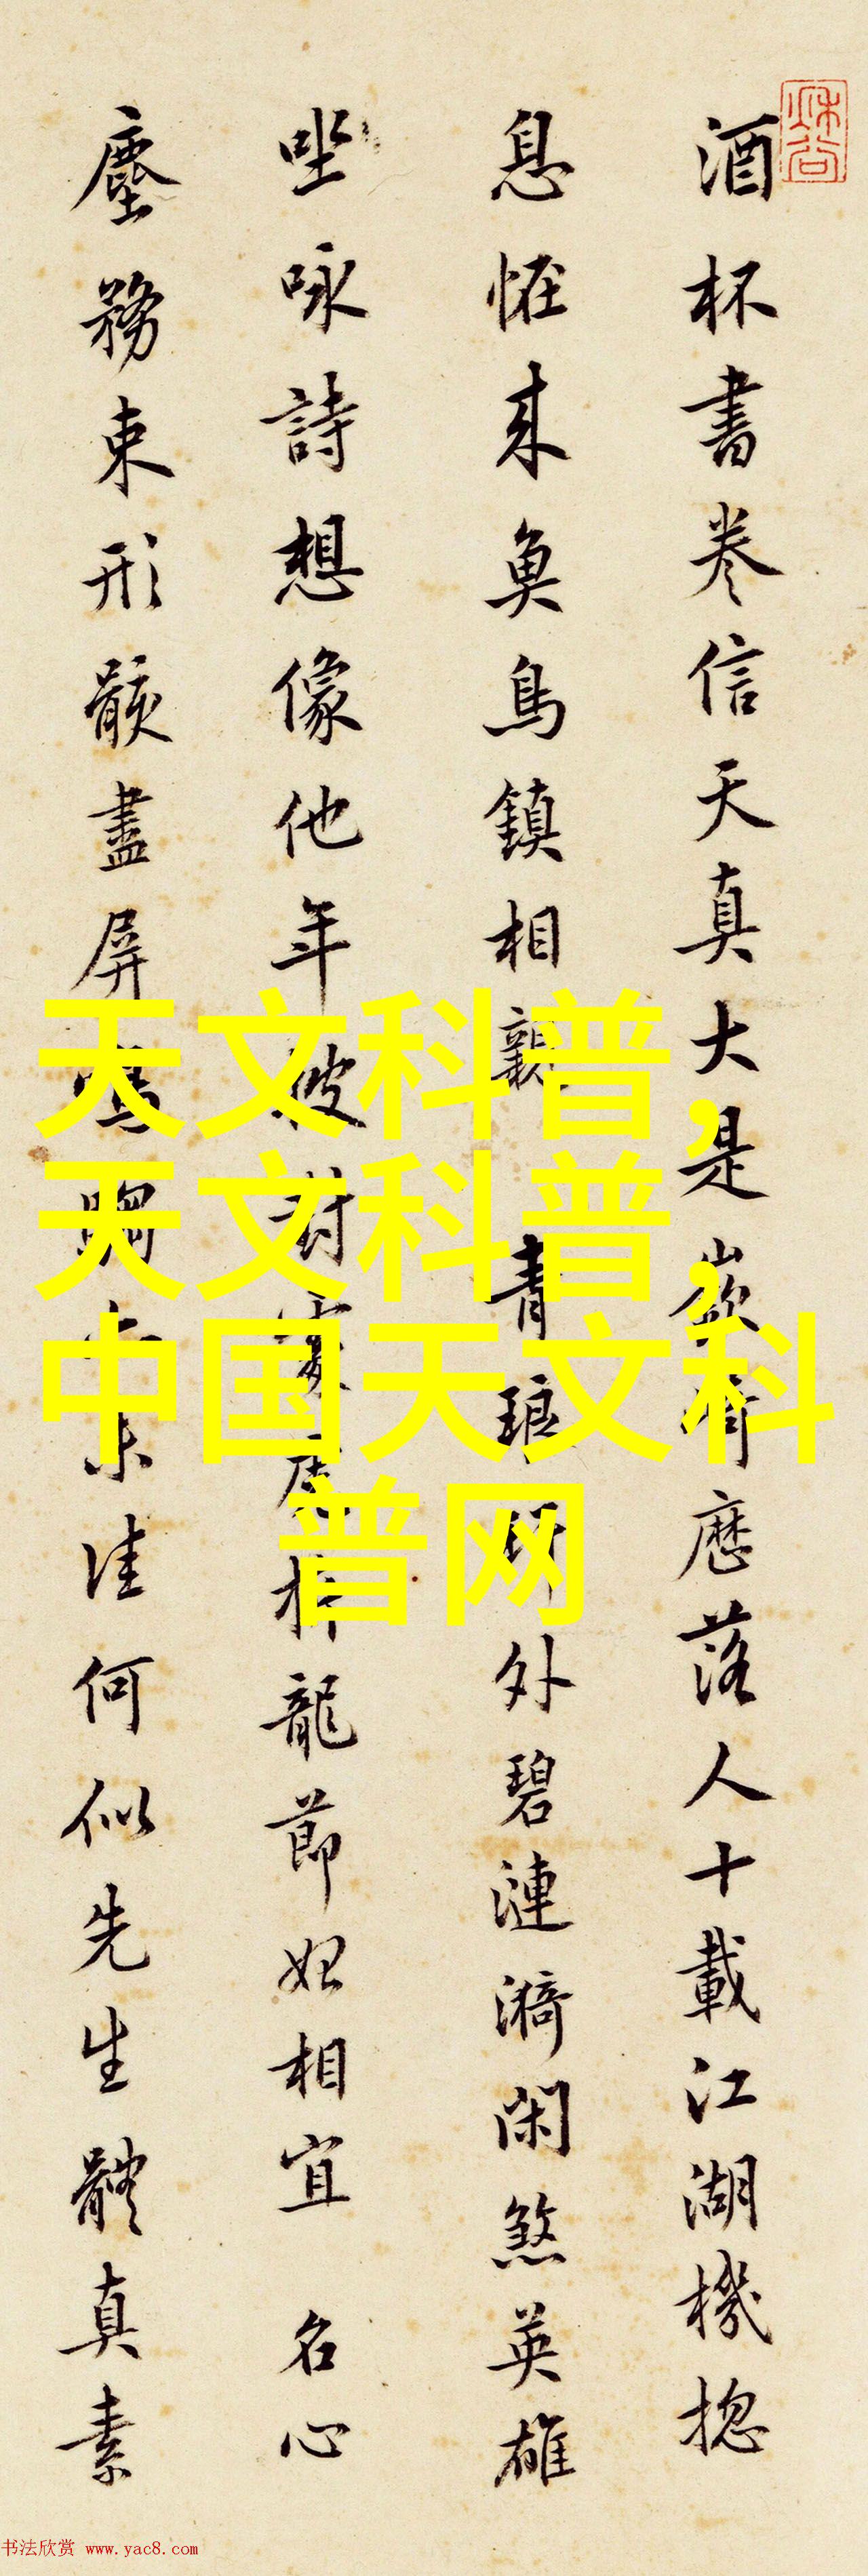 酒杯書卷信天真大是嶔崎歷落人十載江湖機揔
息恠來魚鳥鎮相親青琅玕外碧漣漪閑煞英雄
坐咏詩想像他年龍節相宜名心
塵務束形骸盡屏未佳何似先生體真素
天文科普,
天文科普,
中国天文科
普网
书法欣赏 www.yac8.com